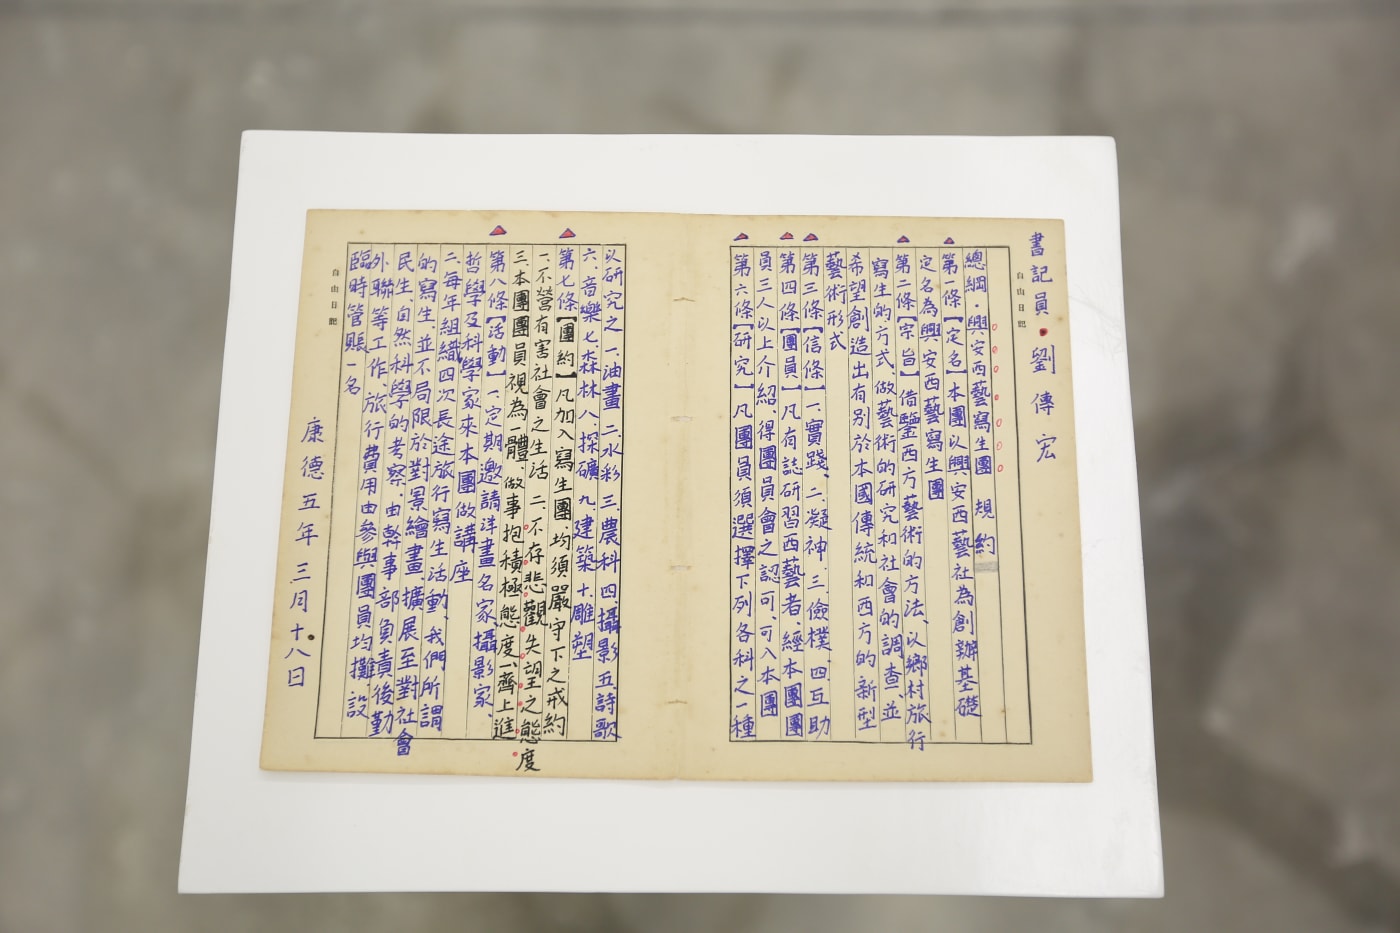 書記員・劉傳宏
白山日記
總綱・興安西藝寫生團 規約
第一條【定名】本團以興安西藝社為創辦基礎
定名為興安西藝寫生團
第二條【宗旨】借鑒西方藝術的方法、以鄉村旅行
寫生的方式、做藝術的研究和社會的調查、並
希望創造出有別於本國傳統和西方的新型
藝術形式
第三條【信條】一、實踐、二、凝神、三、儉樸、四互助
第四條【團員】凡有誌研習西藝者、經本團團
員三人以上介紹、得團員會之認可、可入本團
第六條【研究】凡團員須選擇下列各科之一種
以研究之 一、油畫 二、水彩 三、農科 四攝影、五、詩歌
六、音樂 七、森林 八、探礦 九、建築 十、雕塑
第七條【團約】凡加入寫生團、均須嚴守下之戒約
一、不營有害社會之生活 二、不存悲觀失望之態度
三、本團團員視為一體、做事抱積極態度、一齊上進
第八條【活動】一、定期邀請洋畫名家、攝影家、
哲學及科學家來本團做講座
二、每年組織四次長途旅行寫生活動、我們所謂
的寫生、並不局限於對景繪畫、擴展至對社會
民生、自然科學的考察、由幹事部負責後勤
外聯等工作、旅行費用由參與團員均攤、設
臨時管賬一名
白山日記
康德五年 三月十八日